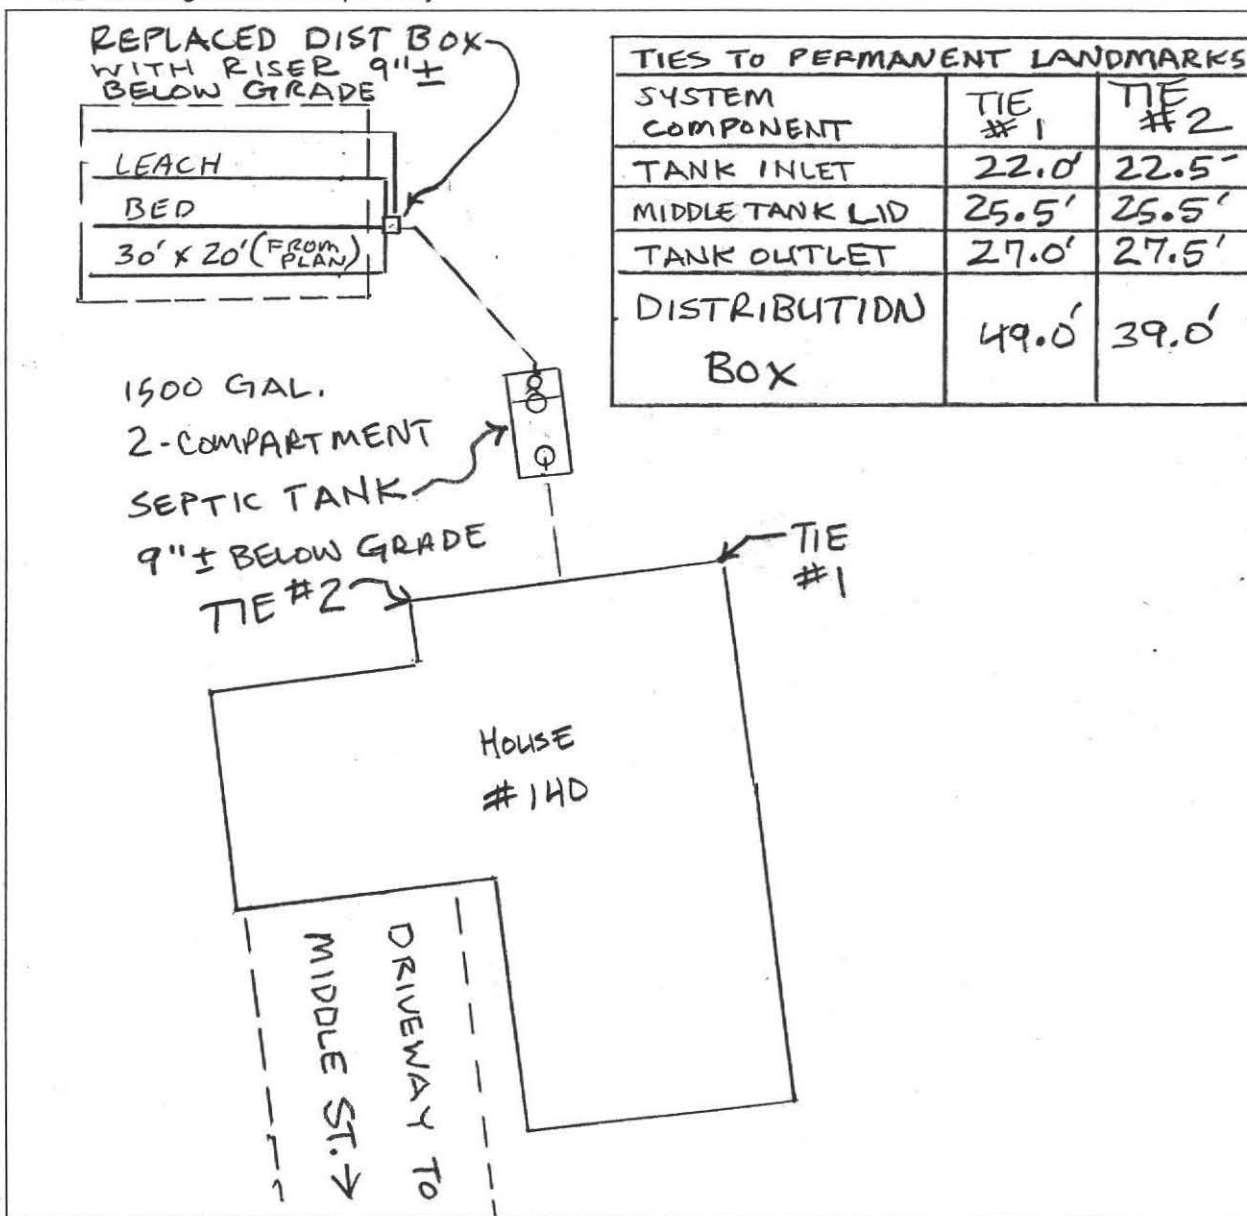 REPLACED DIST BOX
WITH RISER 9"±
BELOW GRADE
LEACH
BED
30' x 20' (FROM PLAN)
TIES TO PERMANENT LANDMARKS
SYSTEM COMPONENT TIE #1 TIE #2
TANK INLET 22.0' 22.5'
MIDDLE TANK LID 25.5' 25.5'
TANK OUTLET 27.0' 27.5'
DISTRIBUTION BOX 49.0' 39.0'
1500 GAL.
2-COMPARTMENT
SEPTIC TANK
9"± BELOW GRADE
TIE #2
TIE
#1
HOUSE
#140
DRIVEWAY TO
MIDDLE ST. →